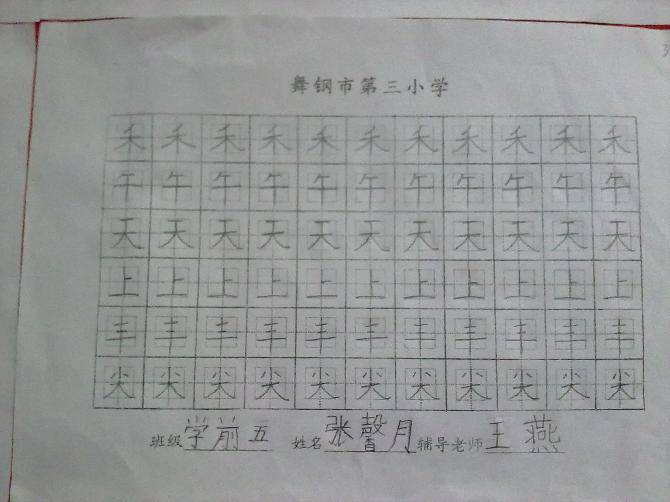 舞钢市第三小学
禾禾禾禾禾禾禾禾禾禾禾
午午午午午午午午午午午
天天天天天天天天天天天
上上上上上上上上上上上
丰丰丰丰丰丰丰丰丰丰丰
尖尖尖尖尖尖尖尖尖尖尖
班级学前五 姓名张馨月辅导老师王燕